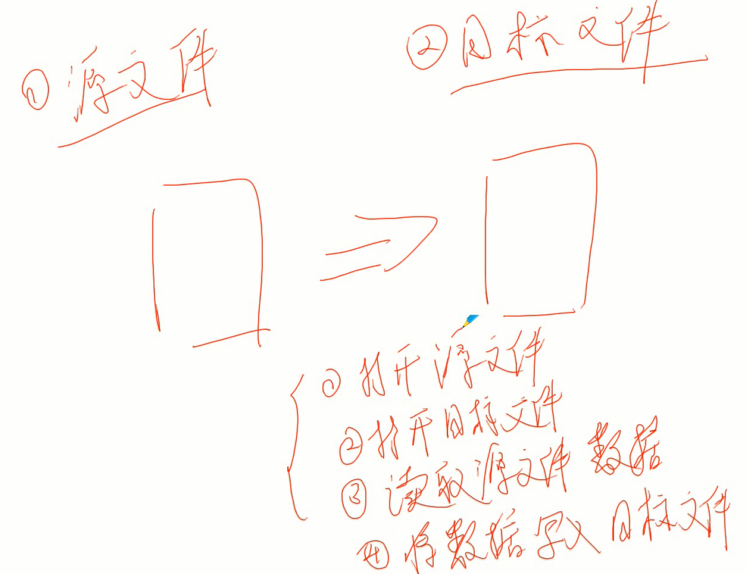 ① 源文件
② 目标文件
① 打开源文件
② 打开目标文件
③ 读取源文件数据
④ 将数据写入目标文件